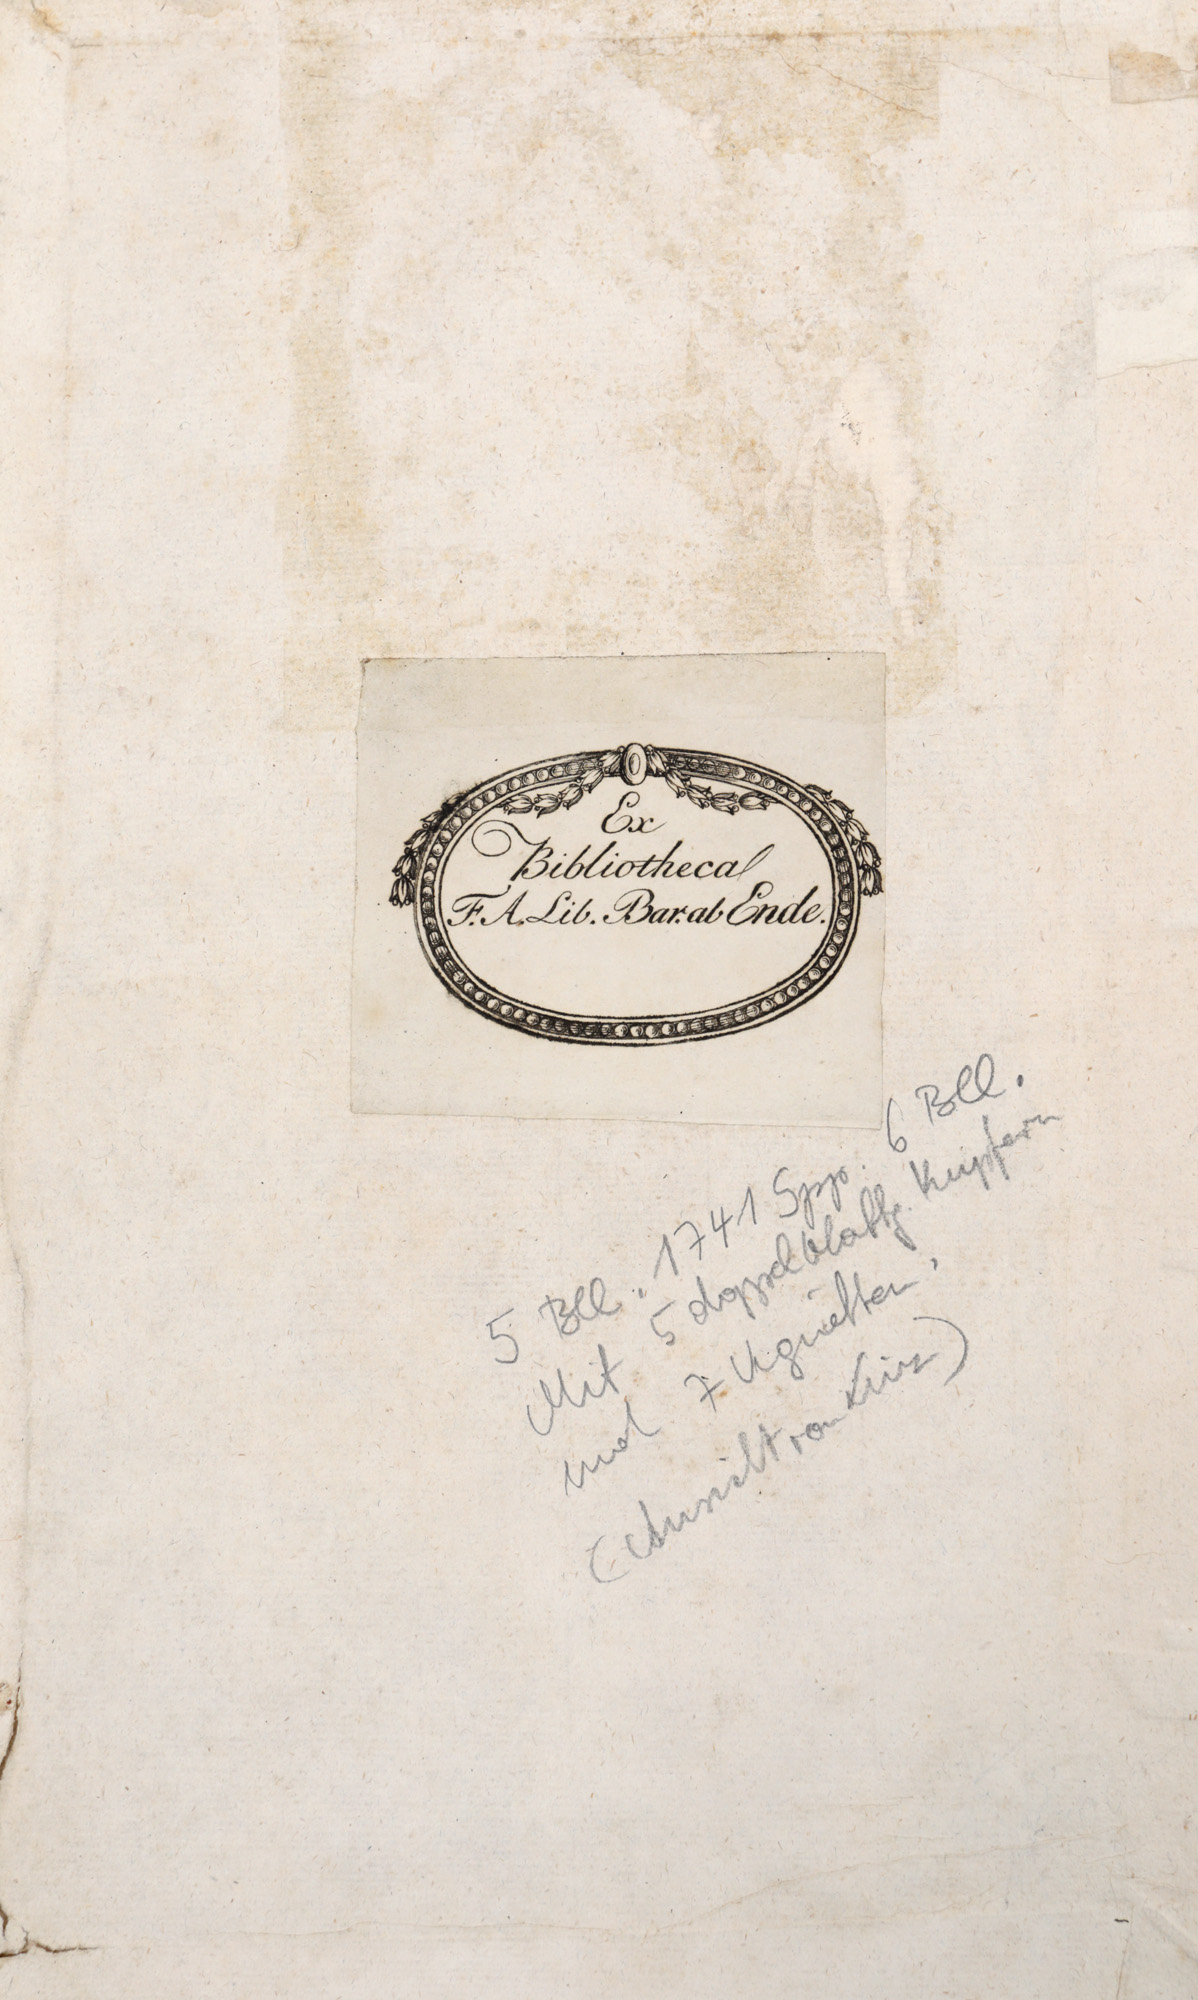 Ex
Bibliotheca
F. A. Lib. Bar. ab Ende.
5 Bll., 1741 Spp. 6 Bll.
Mit 5 doppelblattg. Kupfern
und 7 Vignetten.
von